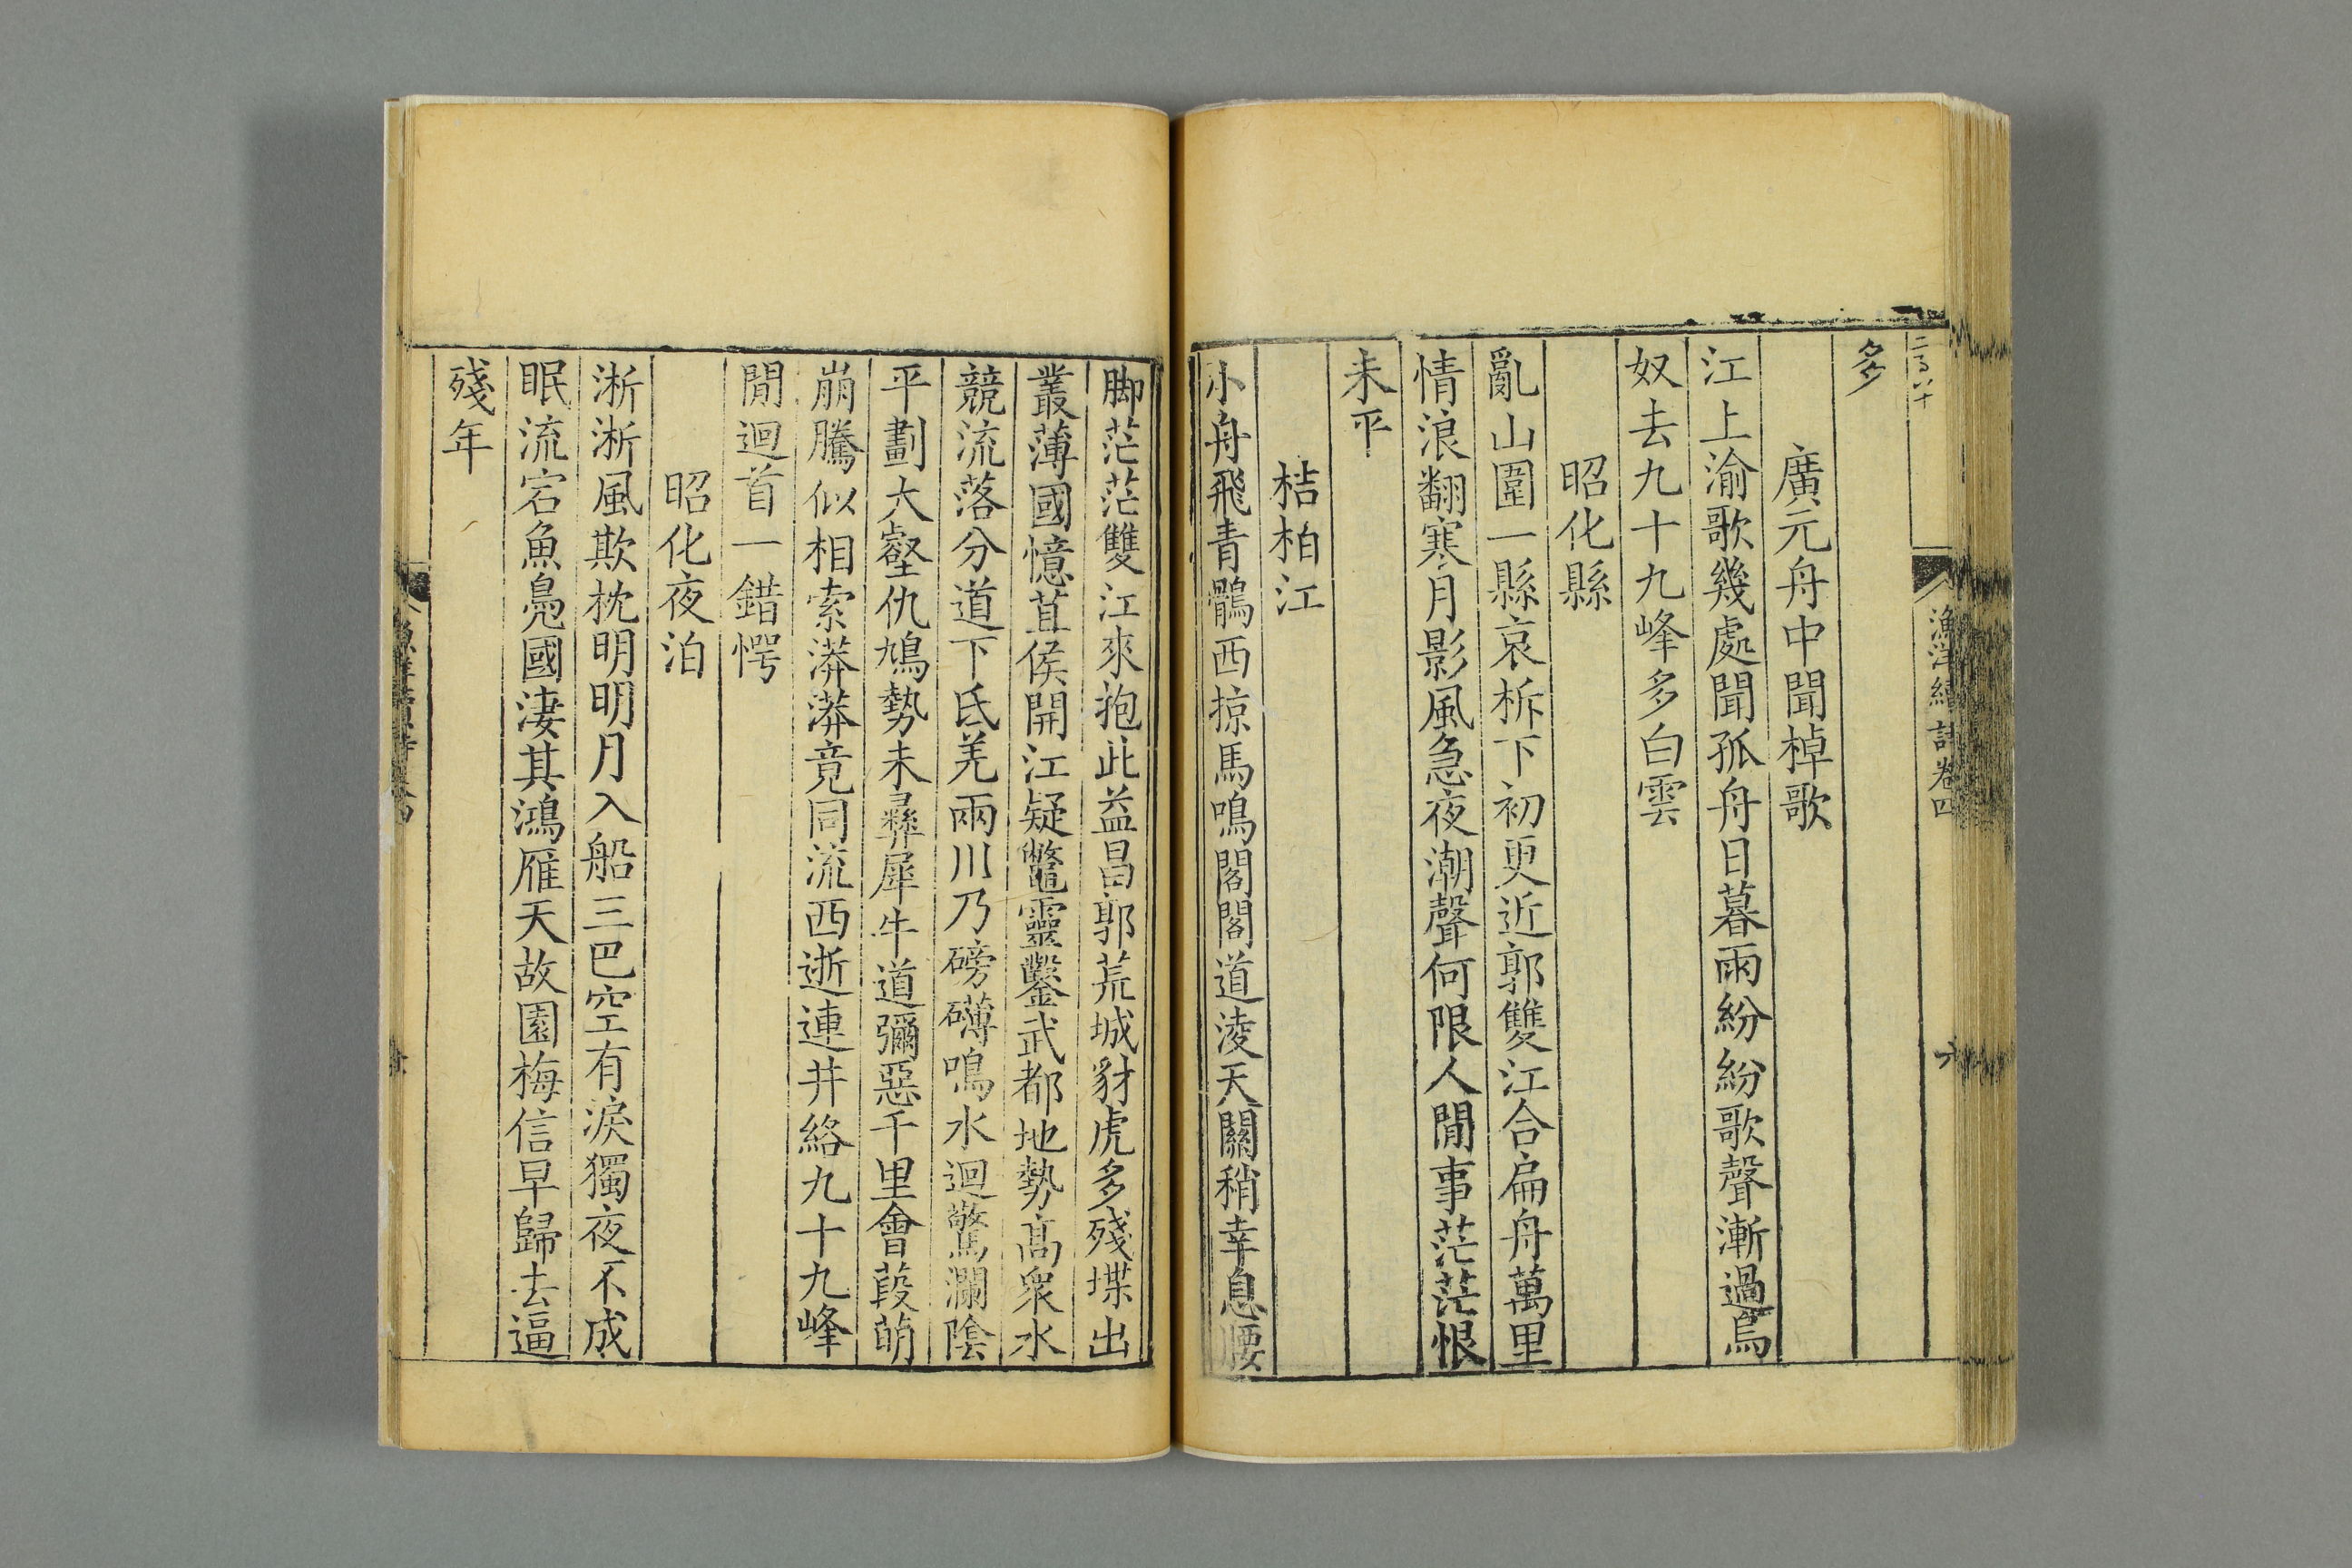 漁洋續詩卷四
多
廣元舟中聞棹歌
江上渝歌幾處聞孤舟日暮雨紛紛歌聲漸過烏
奴去九十九峰多白雲
昭化縣
亂山圍一縣哀柝下初更近郭雙江合扁舟萬里
情浪翻寒月影風急夜潮聲何限人閒事茫茫恨
未平
桔柏江
小舟飛青鶻西掠馬鳴閣閣道淩天關稍幸息腰
脚茫茫雙江來抱此益昌郭荒城豺虎多殘堞出
叢薄國憶苴侯開江疑鼈靈鑿武都地勢高衆水
競流落分道下氐羌兩川乃磅礴鳴水迴驚瀾陰
平劃大壑仇鳩勢未彝犀牛道彌惡千里會葭萌
崩騰似相索漭漭竟同流西逝連井絡九十九峰
閒迴首一錯愕
昭化夜泊
淅淅風欺枕明明月入船三巴空有淚獨夜不成
眠流宕魚鳧國淒其鴻雁天故園梅信早歸去逼
殘年